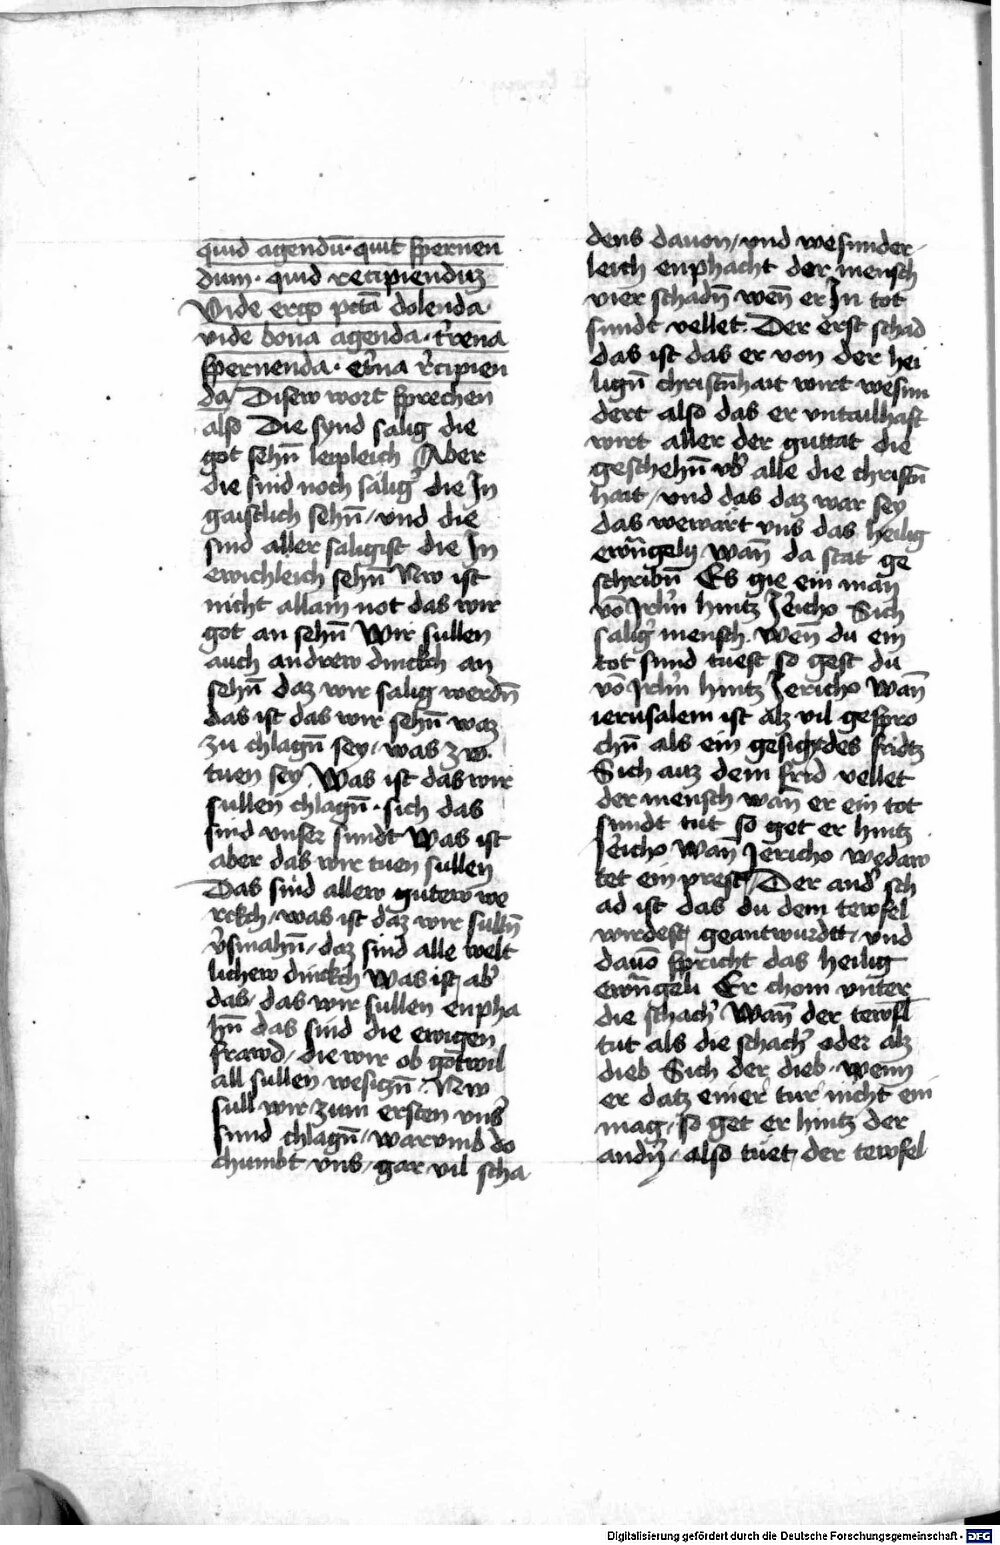 quid agendū · quit spernen
dum · quid recipienduz
Vide ergo pctā dolenda ·
vide bona agenda · t'rena
spernenda · et'na r'cipien
da / Disew wort sprechen
also Die synd salig die
got sehn̄ leipleich Aber
die sind noch sälig' die In
gaistlich sehn̄ / vnd die
sind aller saligist die In
ewichleich sehn̄ Nw ist
nicht allain not das wir
got an sehn̄ Wir sullen
auch andrew dinckch an
sehn̄ daz wir salig werdn̄
das ist das wir sehn̄ waz
zu chlagn̄ sey / was zw
tuen sey Was ist das wir
sullen chlagn̄ · sich das
sind vnser sundt Was ist
aber das wir tuen sullen
Das sind allew gutew we
rckch / was ist daz wir sulln̄
v'smahn̄ / daz sind alle welt
lichew dinckch Was ist ab'
das / das wir sullen enpha
hn̄ das sind die ewigen
frawd / die wir ob got wil
all sullen wesiczn̄ · Nw
sull wir zum ersten vns'
sund chlagn̄ / warvmb do
chumbt vns / gar vil scha
dens dauon / vnd wesunder
leich enphacht der mensch
vier schadn̄ wen̄ er In tot
sundt vellet. Der erst schad
das ist das er von der hei
lign̄ christn̄hait wirt wesun
dert also das er vntailhaft
wirt aller der guttat die
geschehn̄ vb' alle die christn̄
hait / vnd das daz war sey
das wewärt vns das heilig
ewn̄gely · wan̄ da stat ge
schribn̄ Es gie ein man
vō Jrlm̄ hintz Jericho Sich
salig' mensch. wen̄ du ein
tot sund tuest so gest du
vō Jrlm̄ hintz Jericho Wan̄
ierusalem ist alz vil gespro
chn̄ als ein gesicht des fridtz
Sich auz dem frid vellet
der mensch wan̄ er ein tot
sundt tut so get er hintz
Jericho Wan̄ Jericho wedaw
tet ein prest / Der and' sch
ad ist das du dem tewfel
wirdest geantwurdtt / vnd
dauō spricht das heilig
ewn̄geli Er chom vnter
die schach' Wan̄ der tewfl
tut als die schach' oder alz
dieb Sich der dieb · wenn
er datz einer tur nicht ein
mag / so get er hintz der
andn̄ / also tuet der tewfel
Digitalisierung gefördert durch die Deutsche Forschungsgemeinschaft - DFG